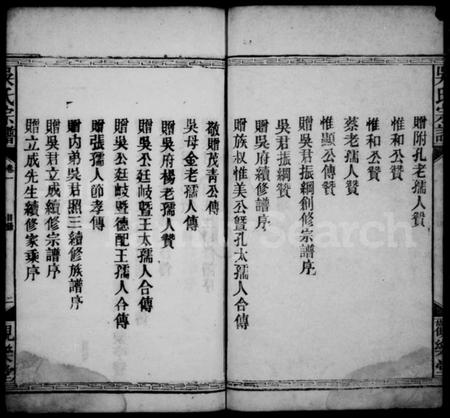 吳氏宗譜
贈附孔老孺人贊
惟和公贊
惟和公贊
蔡老孺人贊
惟顯公傳贊
贈吳君振綱創修宗譜序
吳君振綱贊
贈吳府續修譜序
贈族叔惟美公暨孔太孺人合傳
敬贈茂青公傳
吳母金老孺人傳
贈吳府楊老孺人贊
贈吳公廷岐暨王太孺人合傳
贈吳公廷岐暨德配王孺人合傳
贈張孺人節孝傳
贈內弟吳君照三續修族譜序
贈吳君立成續修宗譜序
贈立成先生續修家乘序
吳氏宗譜
卷一
目錄
二
Search